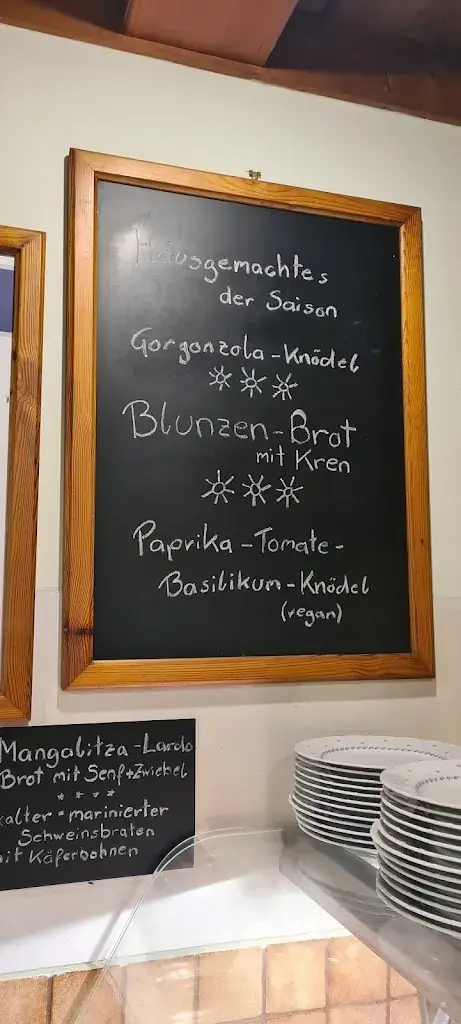 Hausgemachtes
der Saison
Gorgonzola-Knödel
Blunzen-Brot
mit Kren
Paprika-Tomate-
Basilikum-Knödel
(vegan)
Mangalitza-Lardo
Brot mit Senf+Zwiebel
kalter marinierter
Schweinsbraten
mit Käferbohnen